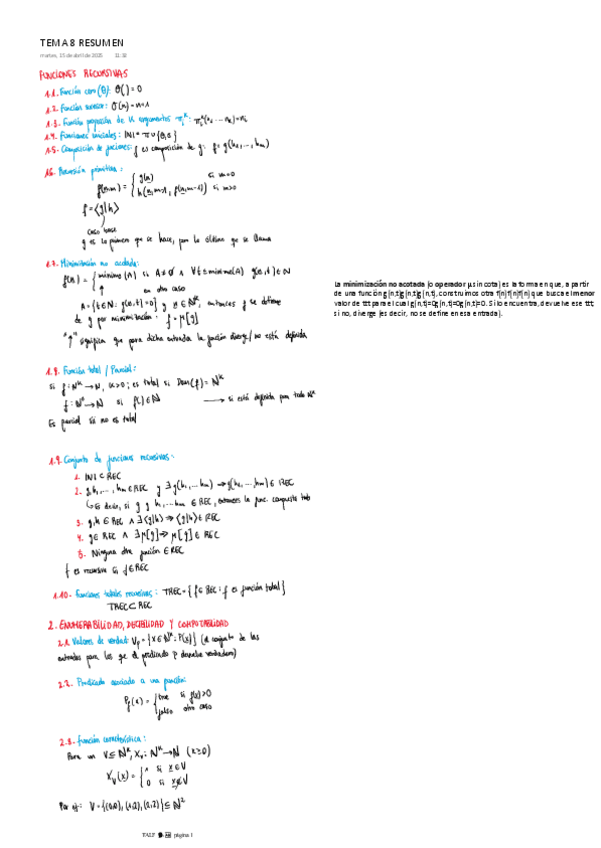 TEMA 8 RESUMEN
martes, 15 de abril de 2025 11:32
FUNCIONES RECURSIVAS
1.1. Función cero (θ): θ() = 0
1.2. Función sucesor: σ(n) = n+1
1.3. Función proyección de k argumentos π_i^k:
1.4. Funciones iniciales: INI = π ∪ {θ, σ}
1.5. Composición de funciones: f es composición de g: f = g(h₁, ..., hₘ)
1.6. Recursión primitiva:
g(n) si m=0
f(n,m) = { h(n, m-1, f(n, m-1)) si m>0
f = <g|h>
caso base
g es lo primero que se hace, pero lo último que se llama
1.7. Minimización no acotada:
A = {t∈N : g(n,t) = 0} y entonces f se define
de g por minimización: f = μ[g]
"↑" significa que para dicha entrada la función diverge/no está definida
La minimización no acotada (o operador μ sin cota) es la forma en que, a partir
de una función g(n,t)g(n,t)g(n,t), construimos otra f(n)f(n)f(n) que busca el menor
valor de ttt para el cual g(n,t)=0g(n,t)=0g(n,t)=0. Si lo encuentra, devuelve ese ttt;
si no, diverge (es decir, no se define en esa entrada).
1.8. Función total / Parcial:
si f: Nᵏ → N, k>0; es total si Dom(f) = Nᵏ
f: N⁰ → N si f() ∈ N → si está definida para todo Nᵏ
Es parcial si no es total
1.9. Conjunto de funciones recursivas:
1. INI ⊂ REC
2. g, h₁, ..., hₘ ∈ REC y ∃ g(h₁, ... hₘ) → g(h₁, ... hₘ) ∈ REC
Es decir, si g y h₁, ... hₘ ∈ REC, entonces la func. compuesta
3. g, h ∈ REC ∧ ∃ <g|h> → <g|h> ∈ REC
4. g ∈ REC ∧ ∃ μ[g] → μ[g] ∈ REC
5. Ninguna otra función ∈ REC
f es recursiva si f ∈ REC
1.10. Funciones totales recursivas: TREC = {f ∈ REC : f es función total}
TREC ⊂ REC
2. ENUMERABILIDAD, DECIBILIDAD Y COMPUTABILIDAD
2.1. Valores de verdad: V_P = {x ∈ Nᵏ : P(x)} (el conjunto de las
entradas para los que el predicado P devuelve verdadero)
2.2. Predicado asociado a una función:
P_f(x) = { true si f(x) > 0
falso otro caso
2.3. Función característica:
Para un V ⊆ Nᵏ, X_V : Nᵏ → N (k ≥ 0)
X_V(x) = { 1 si x ∈ V
0 si x ∉ V
Por ej: V = {(0,0), (1,2), (2,2)} ⊆ N²
TALF página 1